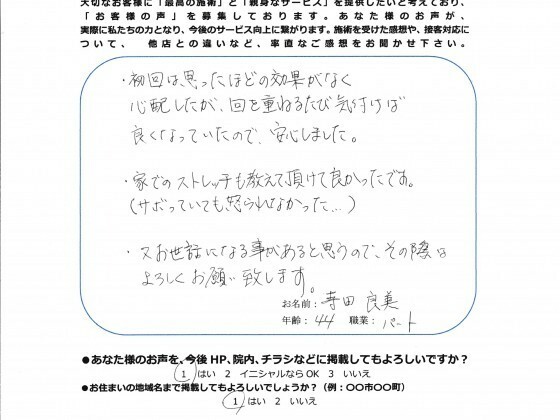 大切なお客様に「最高の施術」と「親身なサービス」を提供したいと考えており、
「お客様の声」を募集しております。あなた様のお声が、
実際に私たちの力となり、今後のサービス向上に繋がります。施術を受けた感想や、接客対応に
ついて、 他店との違いなど、率直なご感想をお聞かせ下さい。
・初回は思ったほどの効果がなく
心配したが、回を重ねるたび気付けば
良くなっていたので、安心しました。
・家でのストレッチも教えて頂けて良かったです。
(サボっていても怒られなかった…)
・又お世話になる事があると思うので、その際は
よろしくお願い致します。
お名前: 寺田 良美
年齢: 44 職業: パート
●あなた様のお声を、今後HP、院内、チラシなどに掲載してもよろしいですか？
1 はい 2 イニシャルならOK 3 いいえ
●お住まいの地域名まで掲載してもよろしいでしょうか？（例：〇〇市〇〇町）
1 はい 2 いいえ